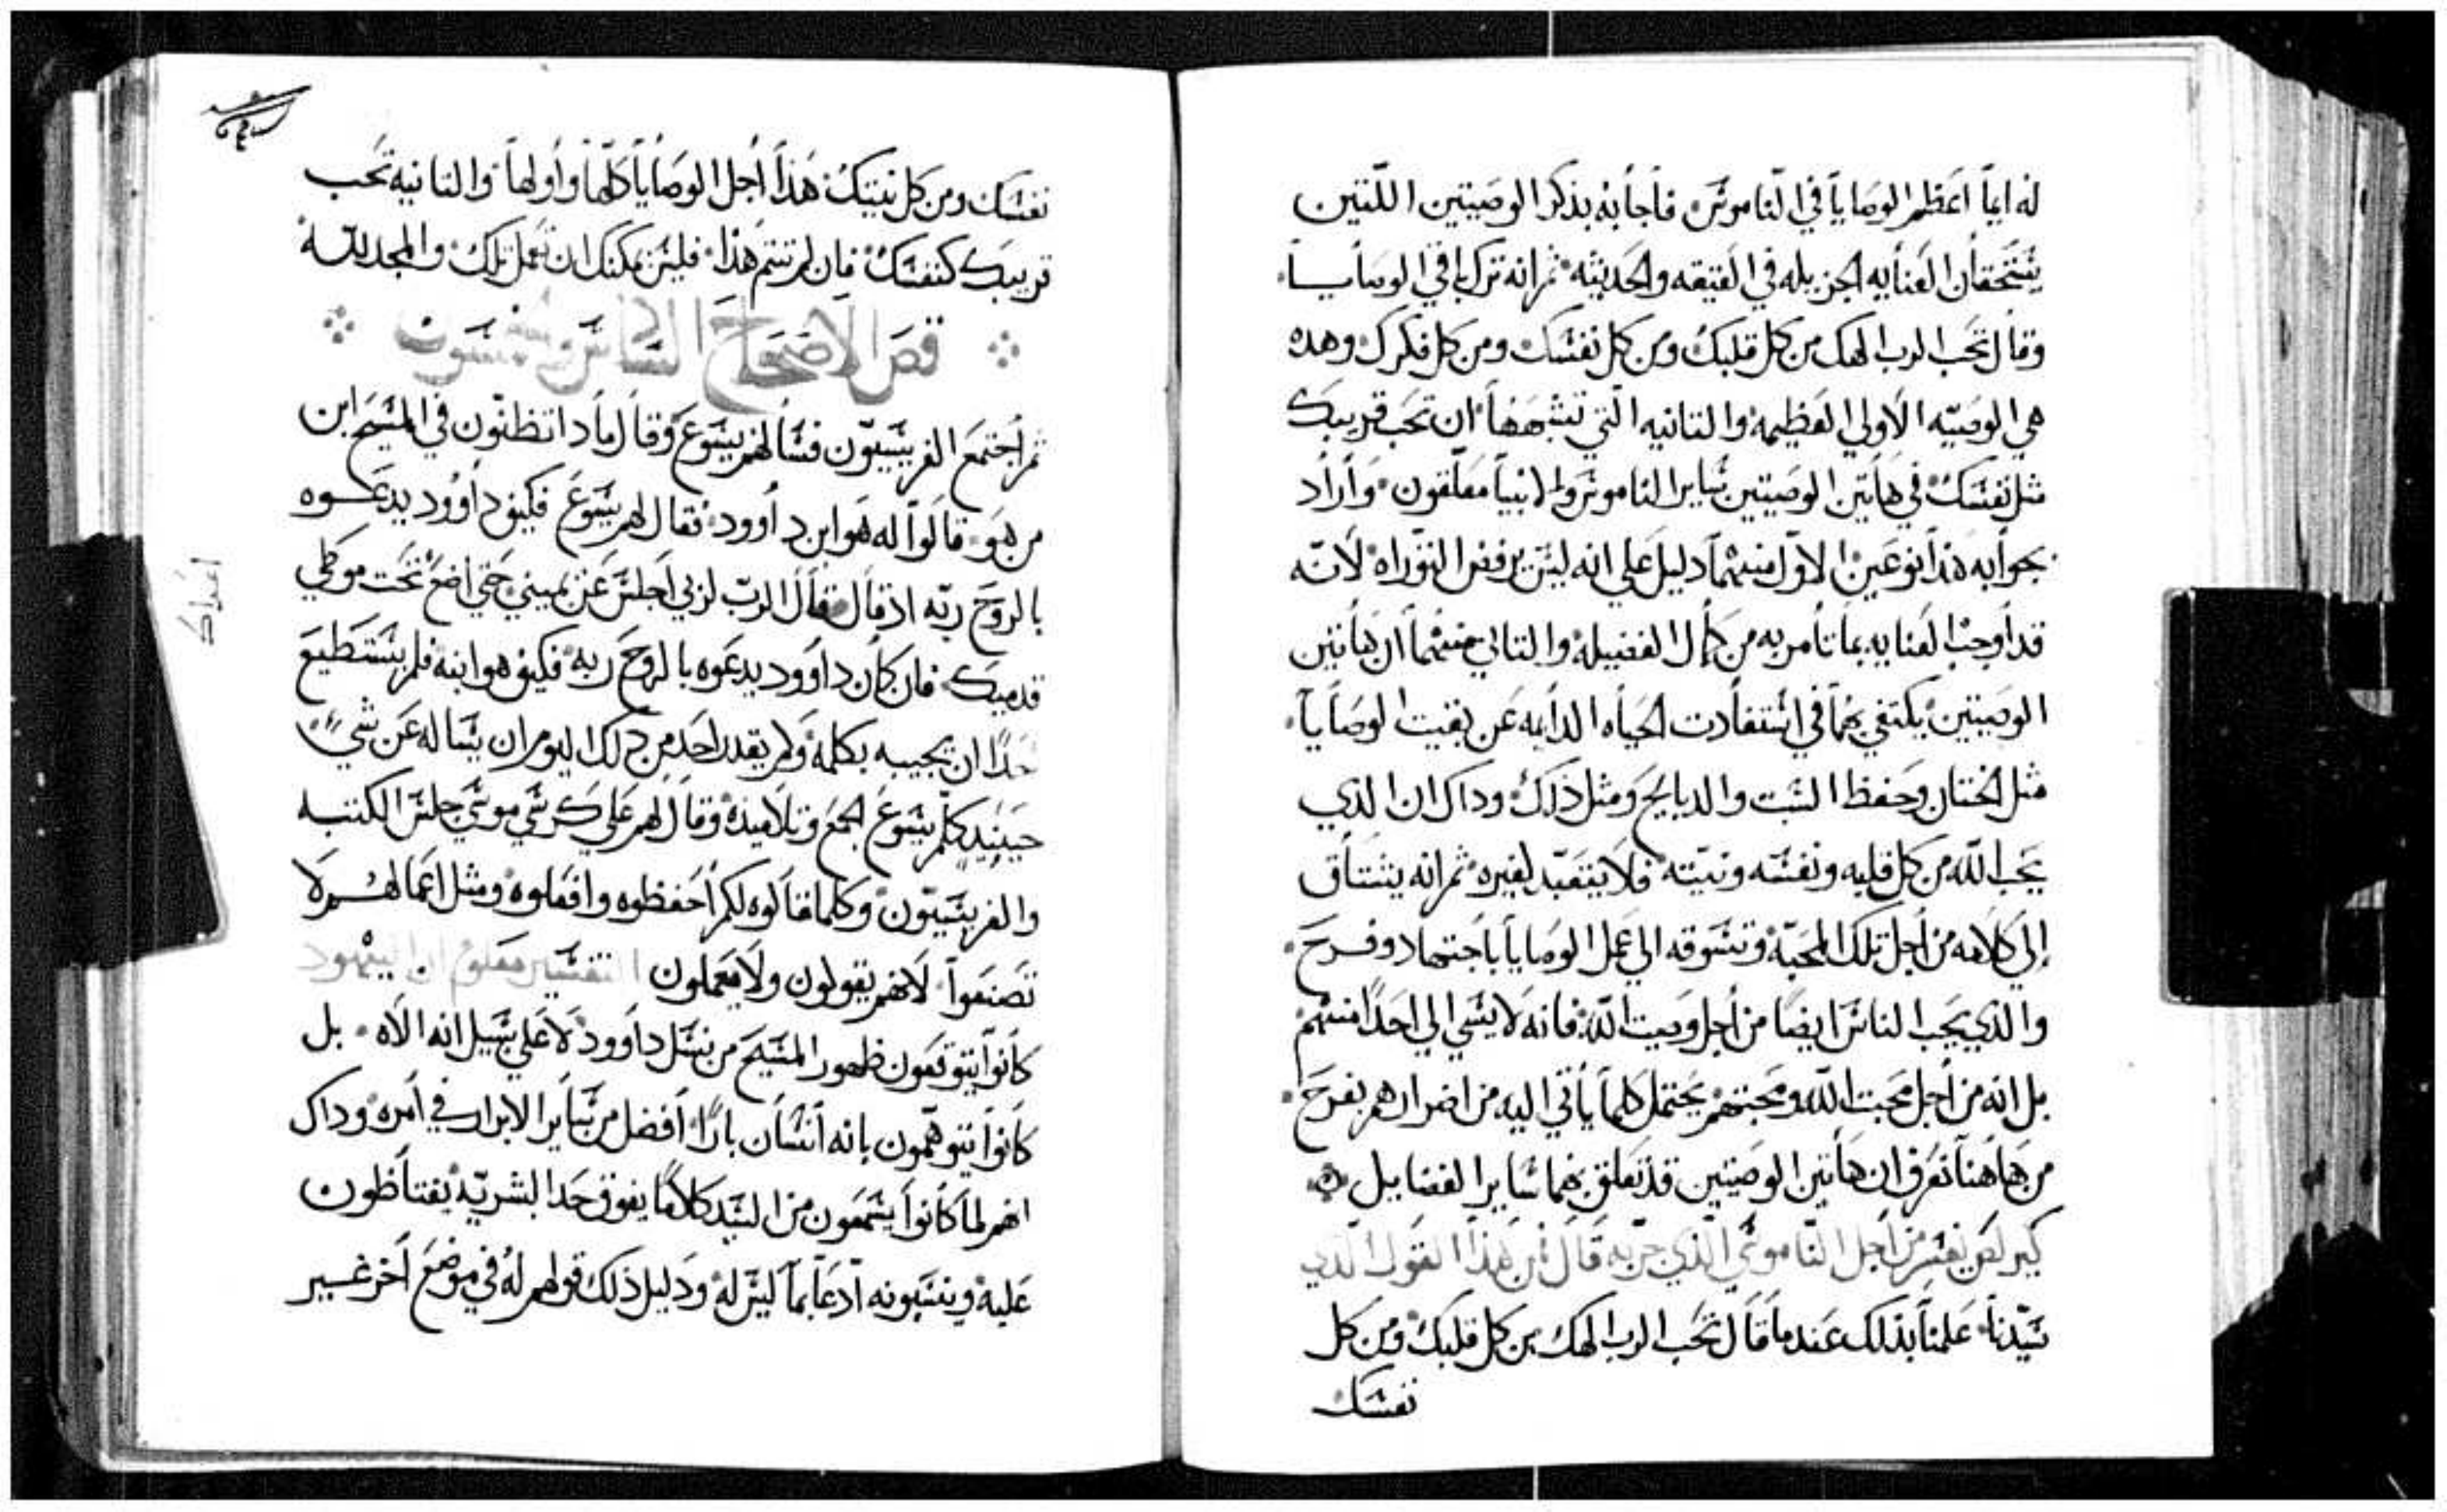 له ايما اعظم الوصايا في الناموس فاجابه بذكر الوصيتين اللتين
يستحقان العنايه الجزيله في العتيقه والحديثه ثم انه ترك باقي الوصايا
وقال تحب الرب الهك من كل قلبك ومن كل نفسك ومن كل فكرك وهده
هي الوصيه الاولي العظيمه والتانيه التي تشبهها ان تحب قريبك
مثل نفسك في هاتين الوصيتين ساير الناموس والانبيا معلقون واراد
بجوابه هذا نوعين الاول منهما دليل علي انه ليس يرفض التوراه لانه
قد اوجب العنايه بما تامر به من كمال الفضيله والتاني منهما ان هاتين
الوصيتين يكتفي بهما في استفادت الحياه الدايمه عن بقيت الوصايا
مثل الختان وحفظ السبت والدبايح ومثل ذلك وداك ان الذي
يحب الله من كل قلبه ونفسه ونيته فلا يتعبد لغيره ثم انه يشتاق
إلي كلامه من اجل تلك المحبه وتشوقه الي عمل الوصايا باجتهاد وفرح
والذي يحب الناس ايضا من اجل وصيت الله فانه لا يسي الي احدا منهم
بل انه من اجل محبت الله ومحبتهم يحتمل كلما ياتي اليه من اضرارهم بفرح
من هاهنا نعرف ان هاتين الوصيتين قد تعلق بهما ساير الفضايل
كيرلص يفسر من اجل الناموسي الذي جربه قال ان هذا القول الذي
سيدنا علمنا بذلك عندما قال تحب الرب الهك من كل قلبك ومن كل
نفسك
نفسك ومن كل نيتك هذا اجل الوصايا كلها واولها والتانيه تحب
قريبك كنفسك فان لم تتم هذا فليس يمكنك ان تعمل تلك والمجد لله
فص الاصحاح السادس وخمسون
ثم اجتمع الفريسيون فسالهم يسوع وقال مادا تظنون في المسيح ابن
من هو قالوا له هو ابن داوود فقال لهم يسوع فكيف داوود يدعوه
بالروح ربه اذ قال قال الرب لربي اجلس عن يميني حتي اضع تحت موطي
قدميك فان كان داوود يدعوه بالروح ربه فكيف هو ابنه فلم يستطيع
احدا ان يجيبه بكلمه ولم يقدر احد من دلك اليوم ان يساله عن شيء
حينيد كلم يسوع الجمع وتلاميذه وقال لهم علي كرسي موسي جلس الكتبه
والفريسيون وكلما قالوه لكم احفظوه وافعلوه ومثل اعمالهم لا
تصنعوا لانهم يقولون ولا يعملون التفسير معلوم ان اليهود
كانوا يتوقعون ظهور المسيح من نسل داوود لا علي سبيل انه الاه بل
كانوا يتوهمون بانه انسان بارا افضل من ساير الابرار في امره وداك
انهم لما كانوا يسمعون من السيد كلاما يفوق حد البشريه يغتاظون
عليه وينسبونه ادعا بما ليس له ودليل ذلك قولهم له في موضع اخر غير
اعداك